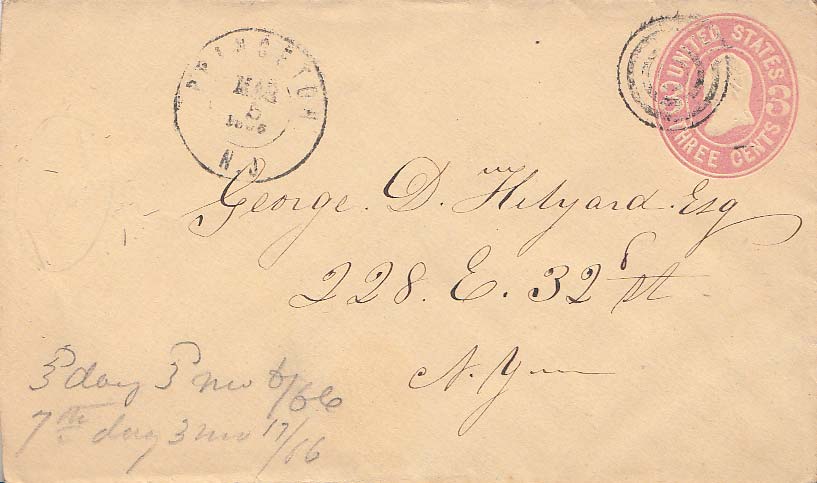 PRINCETON
MAR
5
N.J
UNITED STATES
THREE CENTS
George. D. Hilyard. Esq
228. E. 32d st
N. Y
3d day 3d mo 6/66
7th day 3 mo 17/66